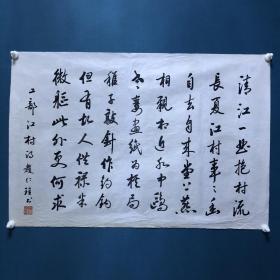 清江一曲抱村流
長夏江村事〻幽
自去自来堂上燕
相親相近水中鷗
老妻畫紙為棋局
稚子敲針作釣鉤
但有故人供祿米
微軀此外更何求
工部江村詩 趙仁珪書